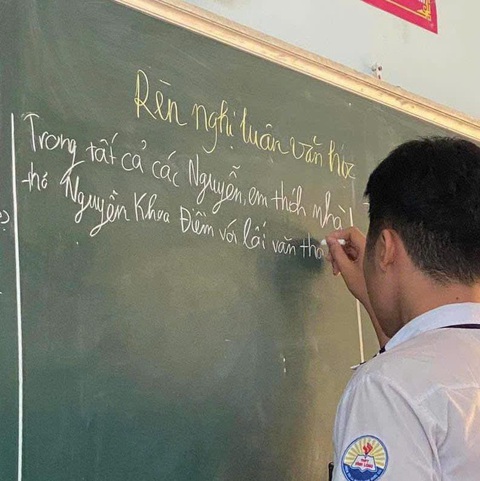 Rèn nghị luận văn học
Trong tất cả các Nguyễn, em thích nhà
thơ Nguyễn Khoa Điềm với lối văn thơ